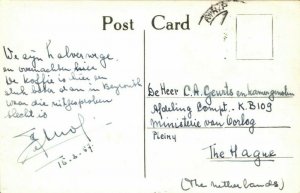 Post Card
We zijn halverwege
en overnachten hier
De koffie is hier en
veel beter dan in Beyrouth
waar die uitgesproken
slecht is
15.3.57
De Heer C.A. Geurts en kamergenoten
Afdeling Compt. K.B109
Ministerie van Oorlog
Plein 4
The Hague
(The Netherlands)